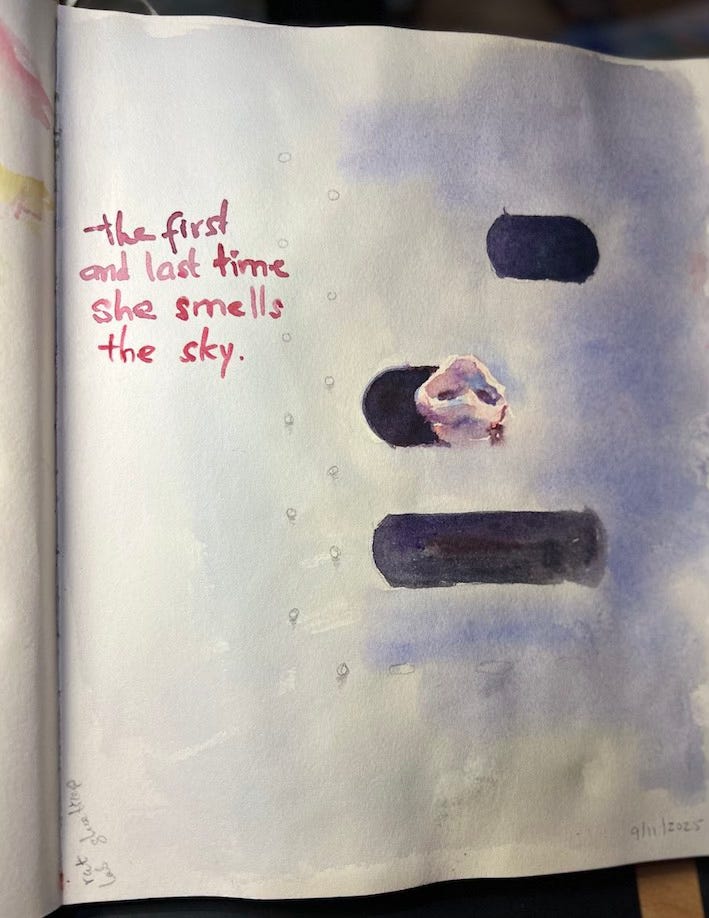 the first
and last time
she smells
the sky.
9/11/2025